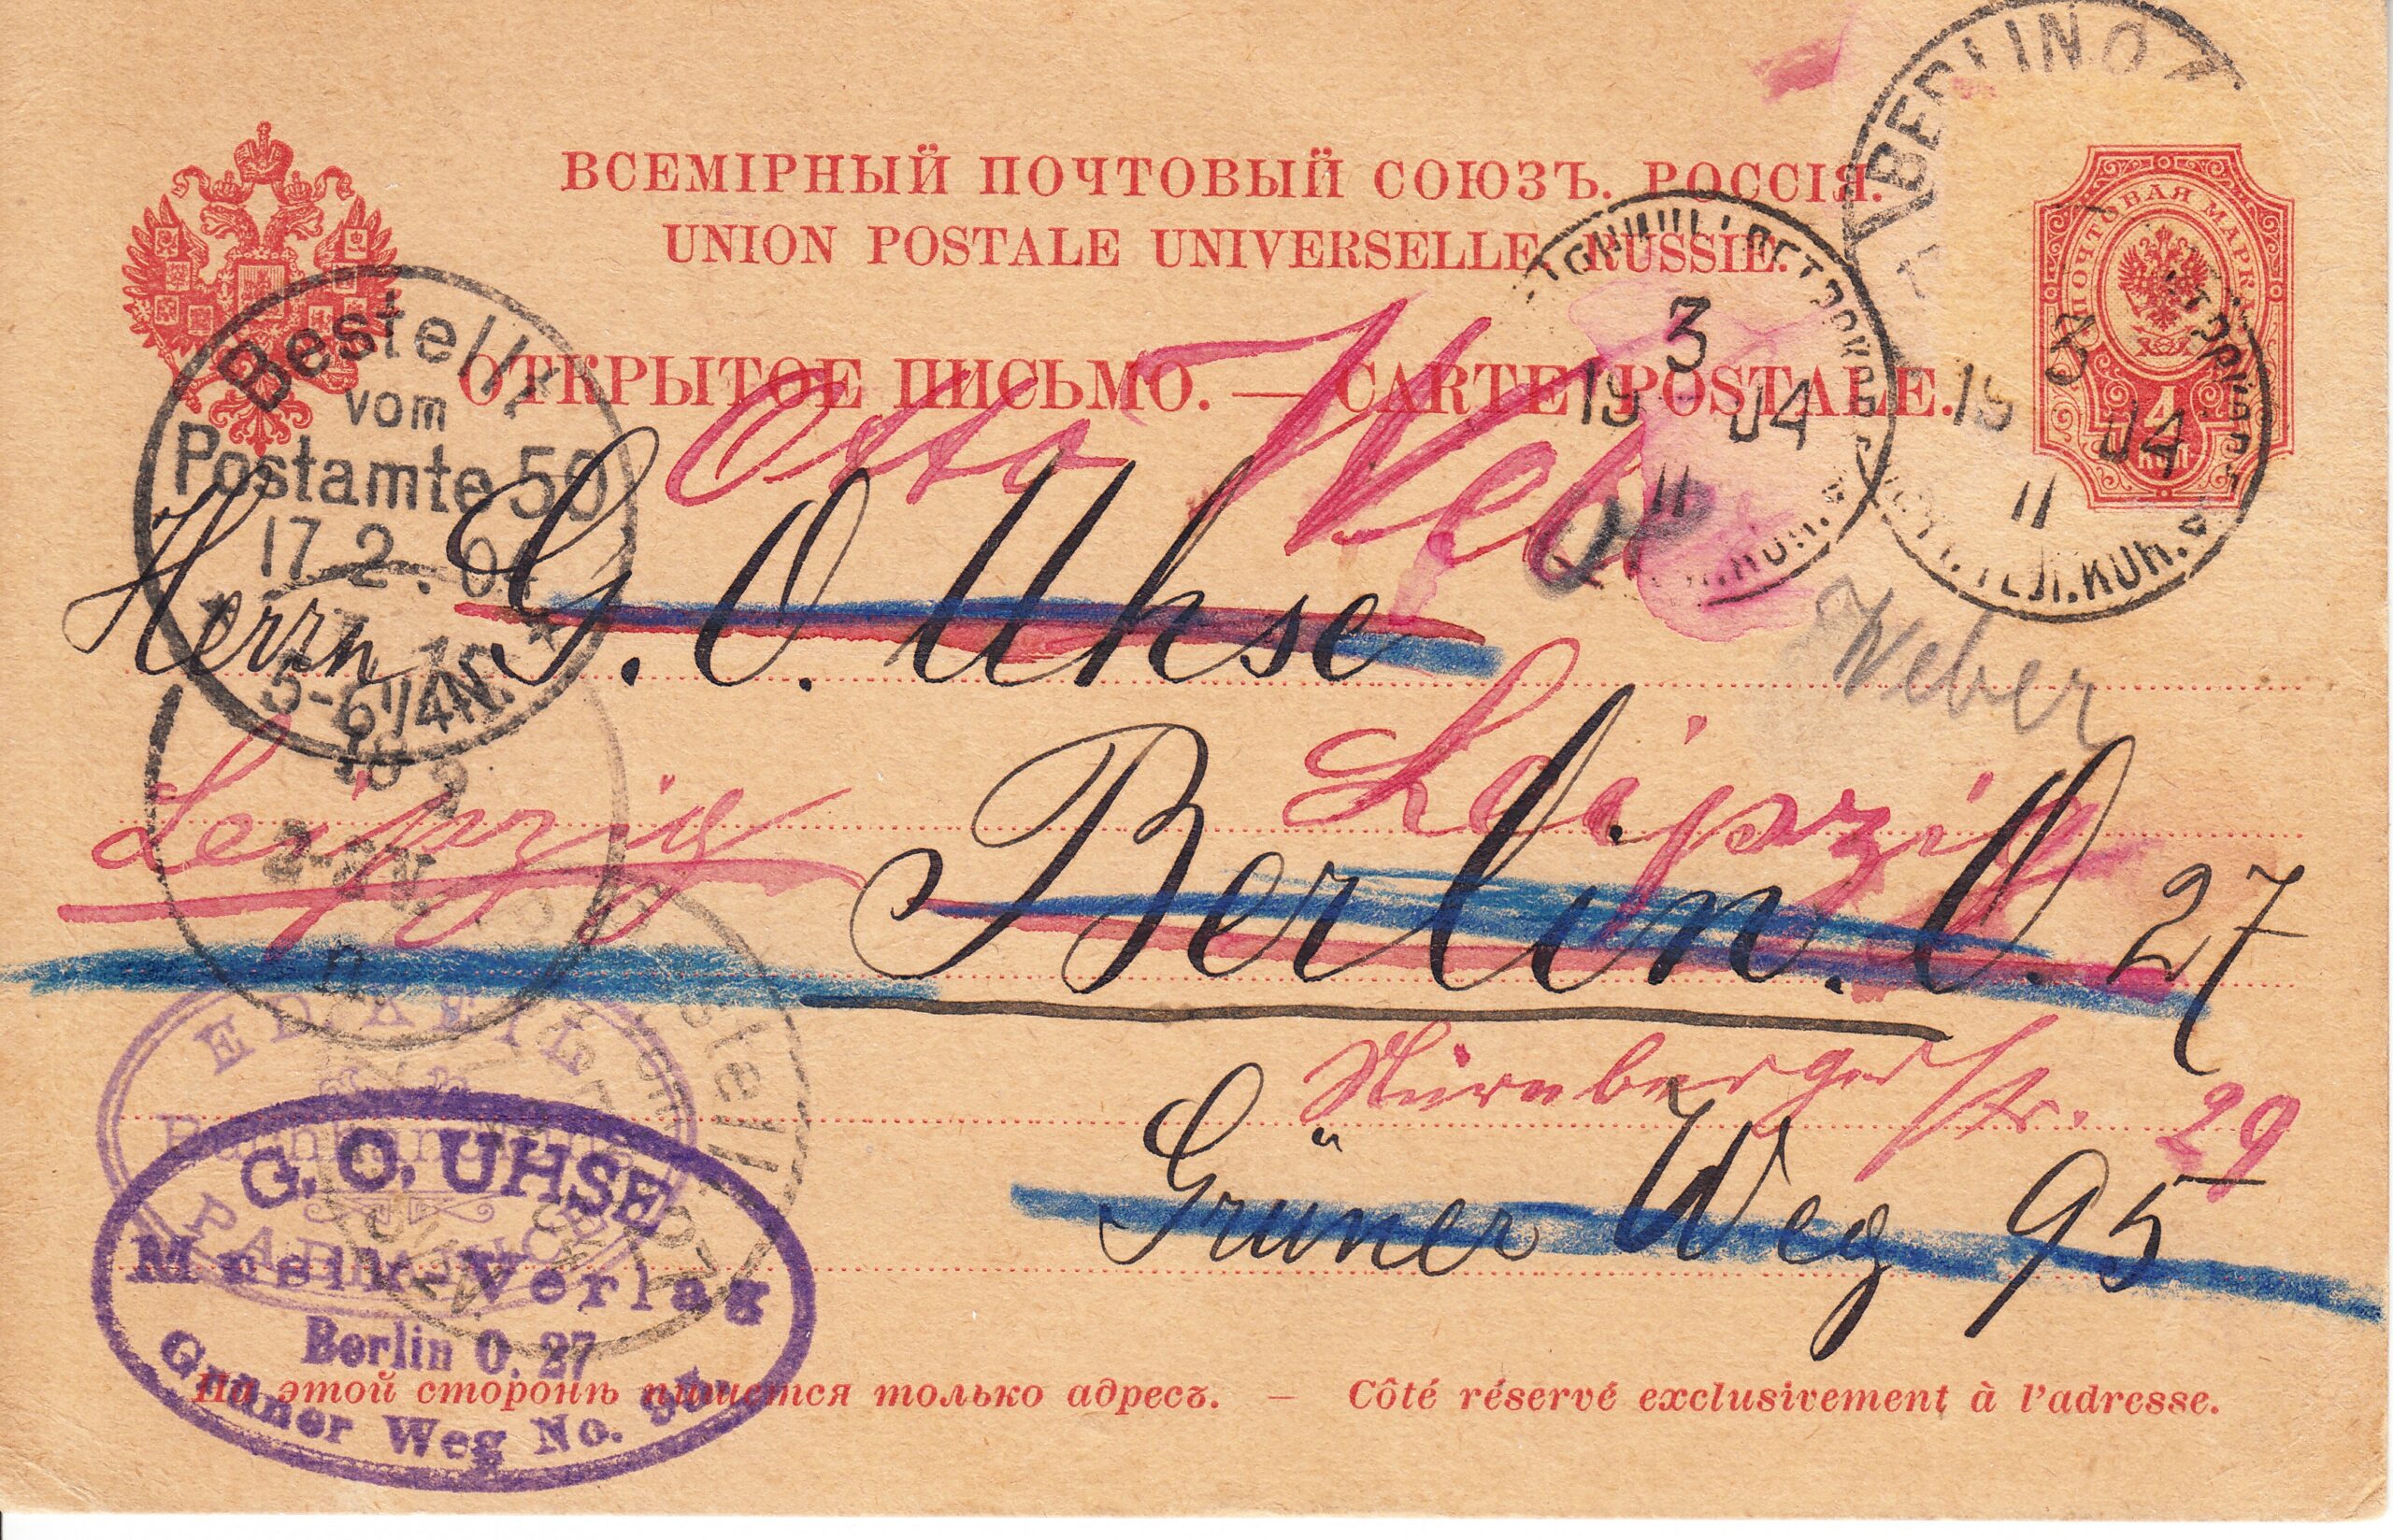 ВСЕМІРНЫЙ ПОЧТОВЫЙ СОЮЗЪ. РОССІЯ.
UNION POSTALE UNIVERSELLE. RUSSIE.
ОТКРЫТОЕ ПИСЬМО. — CARTE POSTALE.
ПОЧТОВАЯ МАРКА
4
КОП
BERLIN O
3
19 04
II
3
19 04
II
ТЕЛ. КОН. 4
Bestellt
vom
Postamte 50
17. 2. 04
5-6 1/4 N.
Otto
Herrn G. O. Uhse
Weber
Leipzig
Leipzig
Berlin. O. 27
Nürnberger Str. 29
Grüner Weg 95
2-2
Bestellt
Buchhandlung
G. O. UHSE
Musik-Verlag
Berlin O. 27
Grüner Weg No.
На этой сторонѣ пишется только адресъ. — Côté réservé exclusivement à l'adresse.